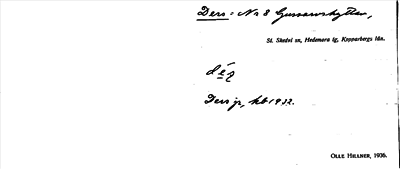 Ders: Nr 8 Gussarvshyttan,
St. Skedvi sn, Hedemora tg, Kopparbergs län.
d é z
Ders jr, kb 1932.
OLLE HILLNER, 1936.